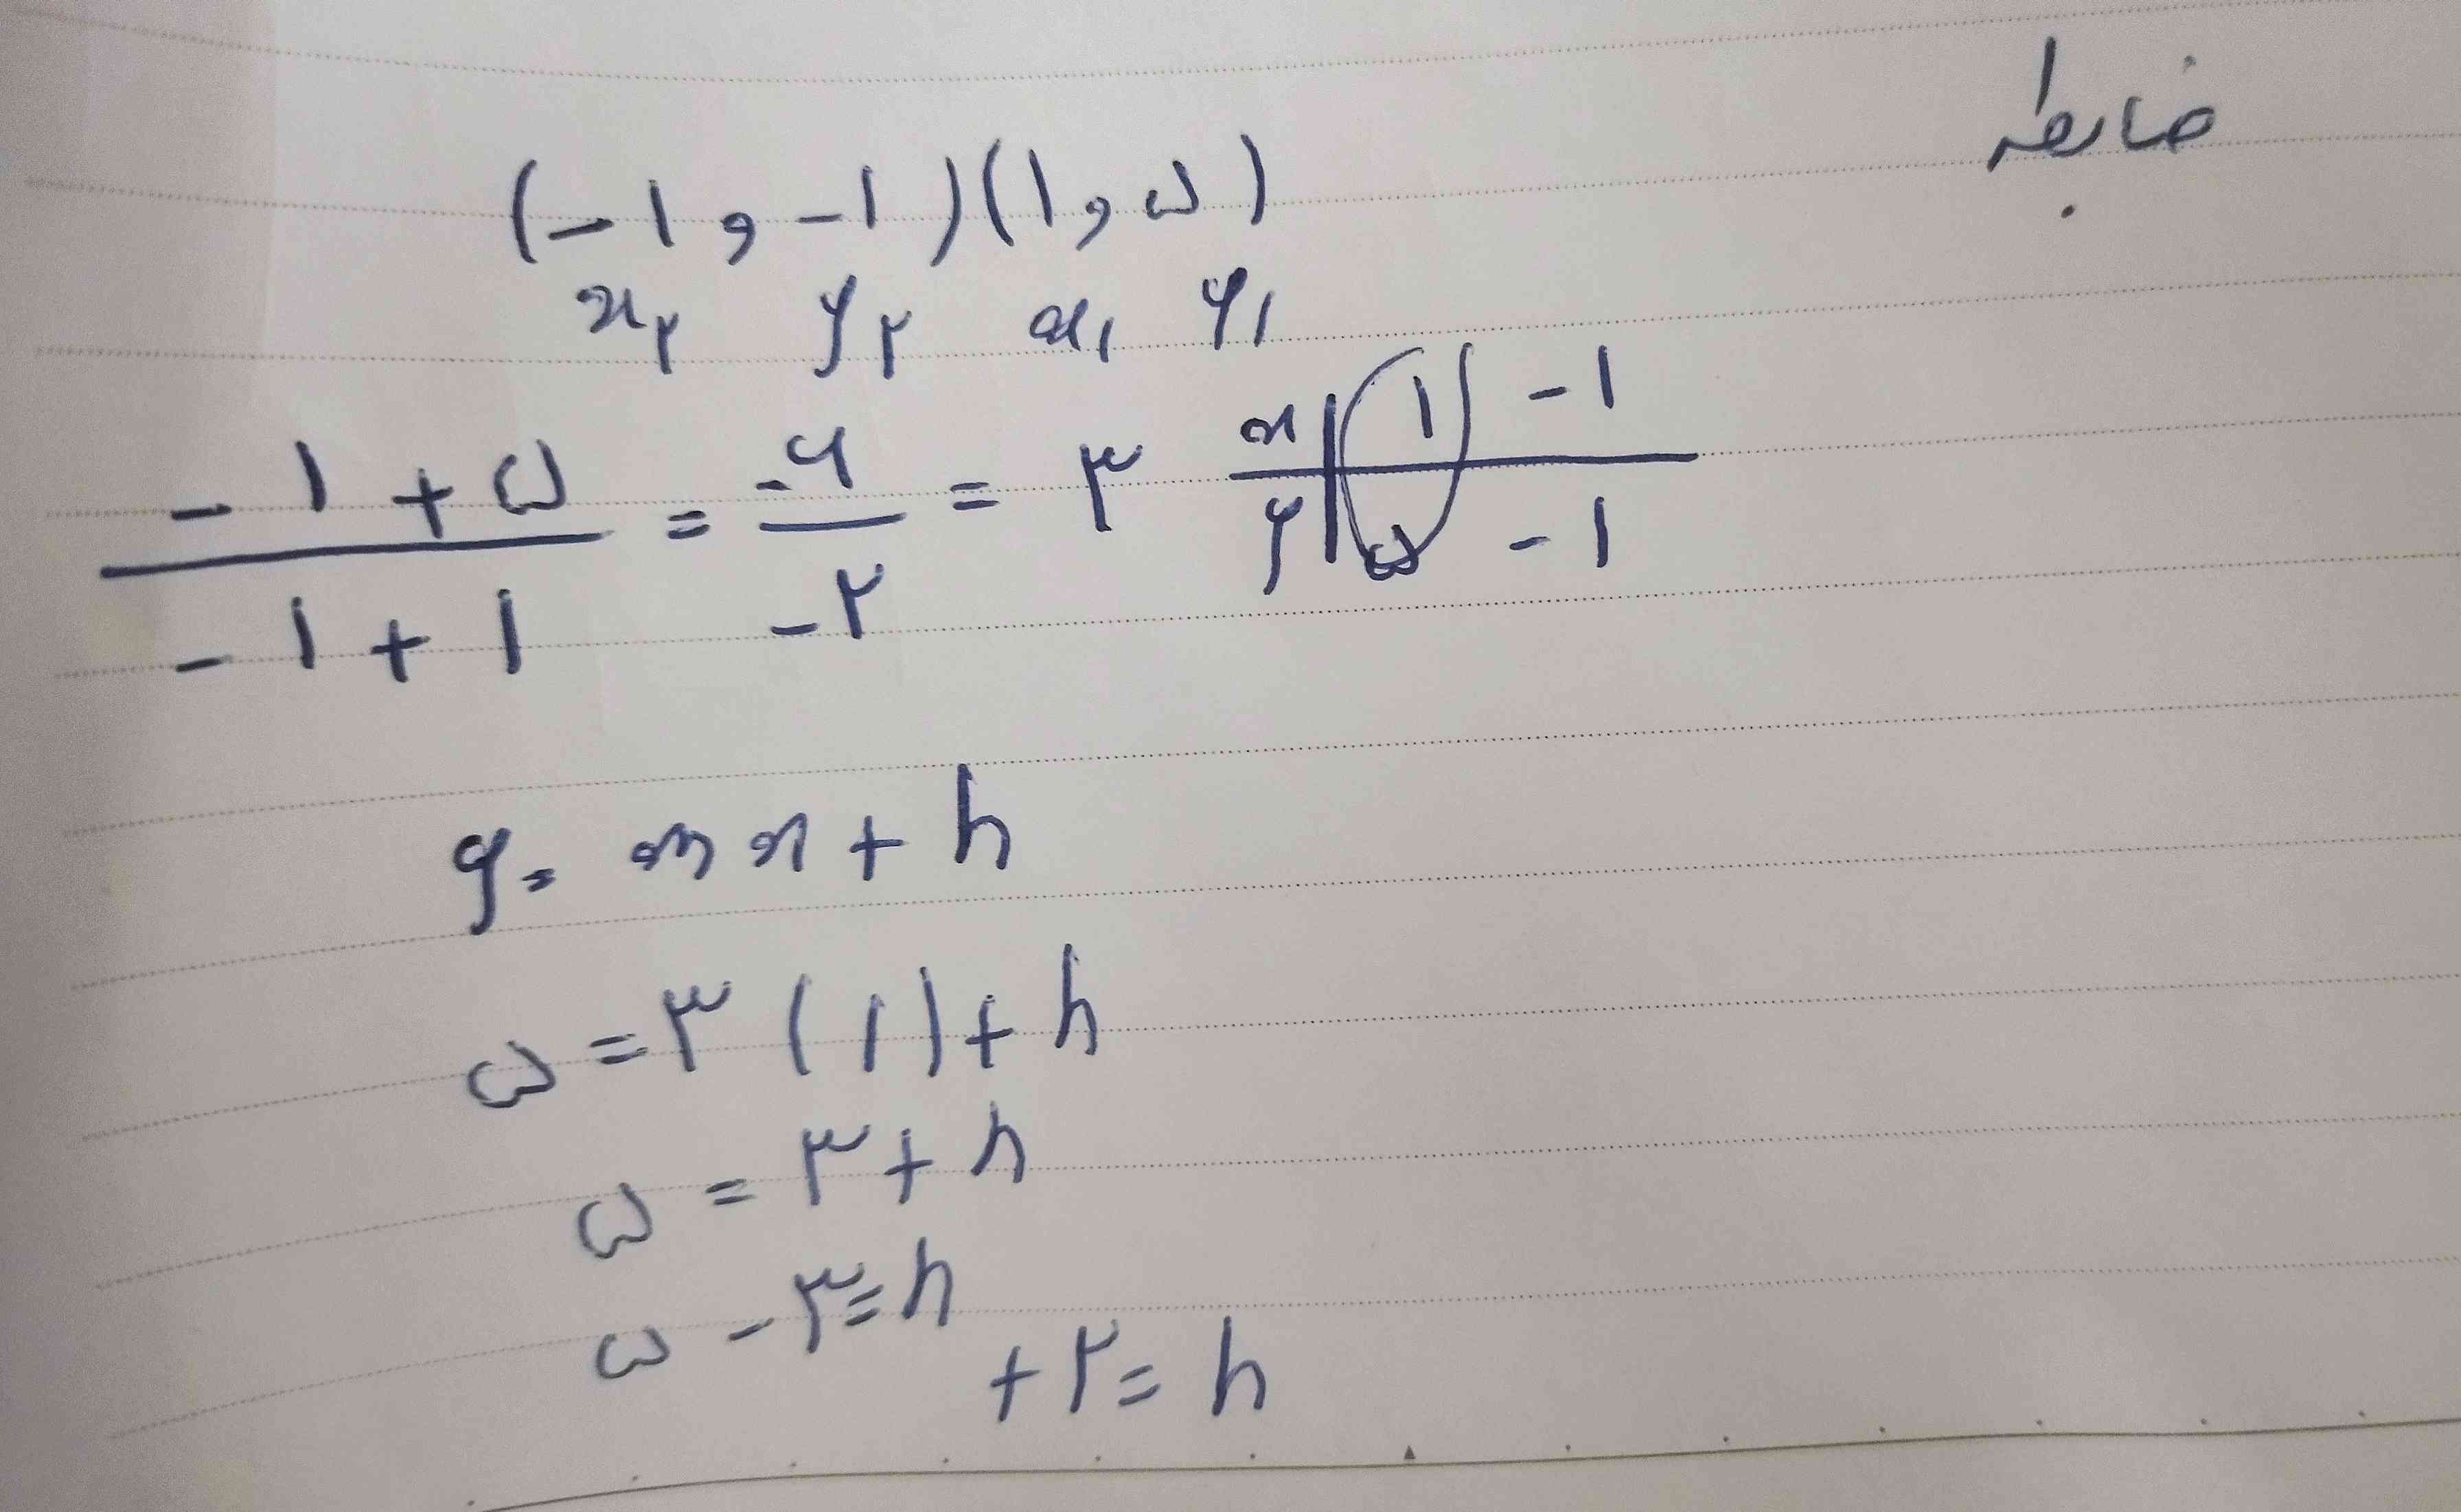 ضابطه
(-۱ و -۱) (۱ و ۵)
x۲ y۲ x۱ y۱
x | ۱ -۱
y | ۵ -۱
(-۱ + ۵)/(-۱ + ۱) = -۶/-۲ = ۳
y = mx + h
۵ = ۳ (۱) + h
۵ = ۳ + h
۵ - ۳ = h
+۲ = h